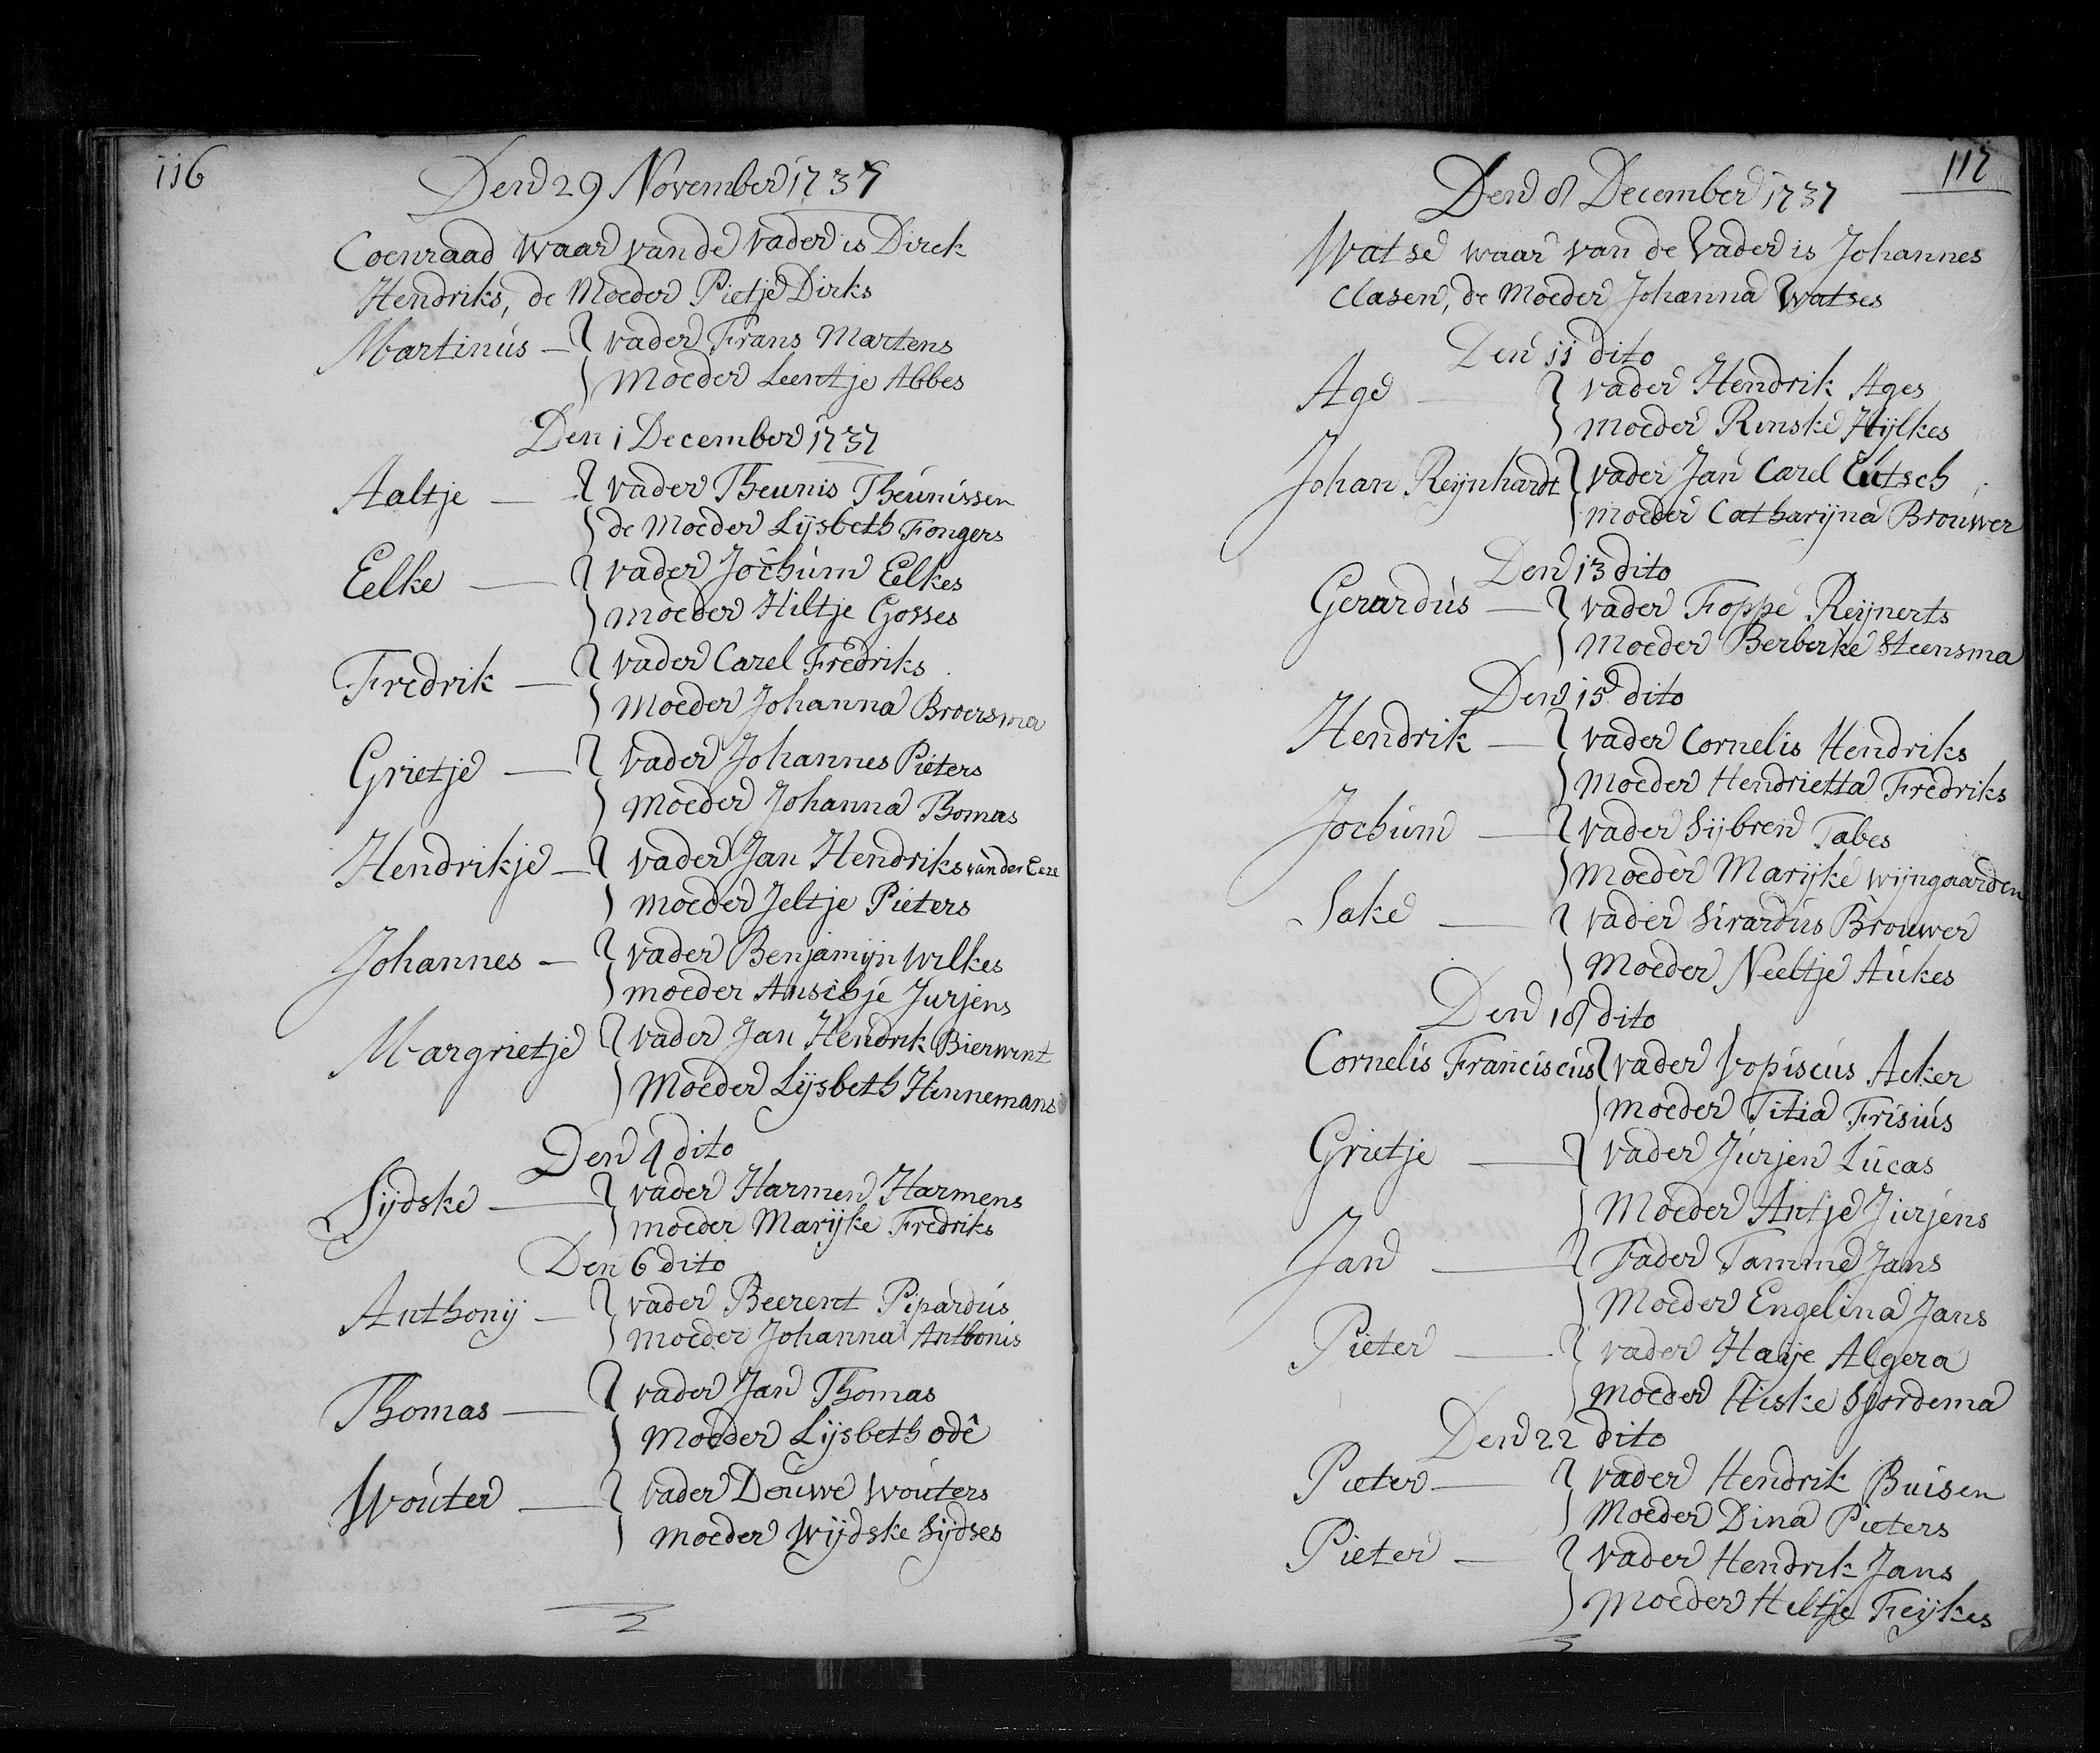 116
Den 29 November 1737
Coenraad waar van de vader is Dirck
Hendriks, de Moeder Pietje Dirks
Martinus — vader Frans Martens
Moeder Leentje Abbes
Den 1 December 1737
Aaltje — vader Theunis Theunissen
de Moeder Lijsbeth Fongers
Eelke — vader Jochum Eelkes
moeder Hiltje Gosses
Fredrik — vader Carel Fredriks
Moeder Johanna Broersma
Grietje — vader Johannes Pieters
Moeder Johanna Thomas
Hendrikje — vader Jan Hendriks van der Eere
moeder Jeltje Pieters
Johannes — vader Benjamijn Wilkes
moeder Ansichje Jurjens
Margrietje vader Jan Hendrik Bierwint
Moeder Lijsbeth Hinnemans
Den 4 dito
Sijdske — vader Harmen Harmens
moeder Marijke Fredriks
Den 6 dito
Anthonij — vader Beerent Pipardus
moeder Johanna Anthonis
Thomas — vader Jan Thomas
Moeder Lijsbeth Odê
Wouter — vader Douwe Wouters
moeder Wijdske Sijdses
117
Den 8 December 1737
Watse waar van de Vader is Johannes
Clasen, de Moeder Johanna Watses
Den 11 dito
Age — vader Hendrik Ages
moeder Rinske Hijlkes
Johan Reijnhardt vader Jan Carel
moeder Catharijna Brouwer
Den 13 dito
Gerardus — vader Foppe Reijnerts
Moeder Berberke Steensma
Den 15 dito
Hendrik — vader Cornelis Hendriks
Moeder Hendrietta Fredriks
Jochum — vader Sijbren Tabes
Moeder Marijke Wijngaarden
Sake — vader Sirardus Brouwer
Moeder Neeltje Aukes
Den 18 dito
Cornelis Franciscus vader Vopiscus Acker
moeder Titia Frisius
Grietje — vader Jurjen Lucas
Moeder Antje Jurjens
Jan — Fader Tamme Jans
Moeder Engelina Jans
Pieter — vader Haije Algera
Moeder Hiske Sjordema
Den 22 dito
Pieter — vader Hendrik Buisen
Moeder Dina Pieters
Pieter — vader Hendrik Jans
Moeder Hiltje Feijkes